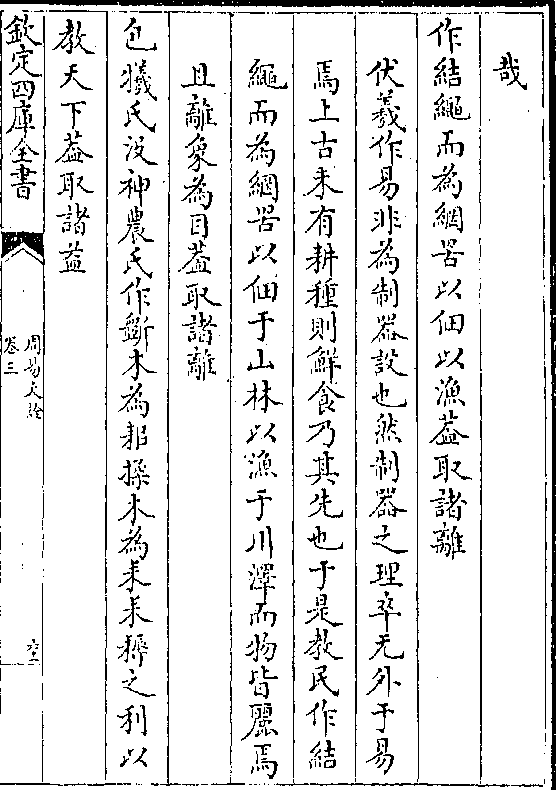 哉
作結繩而為網罟以佃以漁葢取諸離
伏羲作易非為制器設也然制器之理卒无外于易
焉上古未有耕種則鮮食乃其先也于是教民作結
繩而為網罟以佃于山林以漁于川澤而物皆麗焉
且離象為目葢取諸離
包犧氏没神農氏作斵木為耜揉木為耒耒耨之利以
教天下葢取諸益
欽定四庫全書
周易
卷三